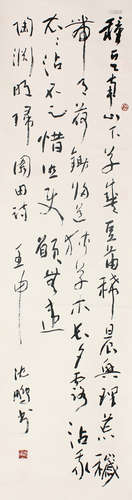 種豆南山下草盛豆苗稀晨興理荒穢
帶月荷鋤歸道狹草木長夕露沾我
衣々沾不足惜但使願無違
陶淵明歸園田詩 壬申 沈鵬書